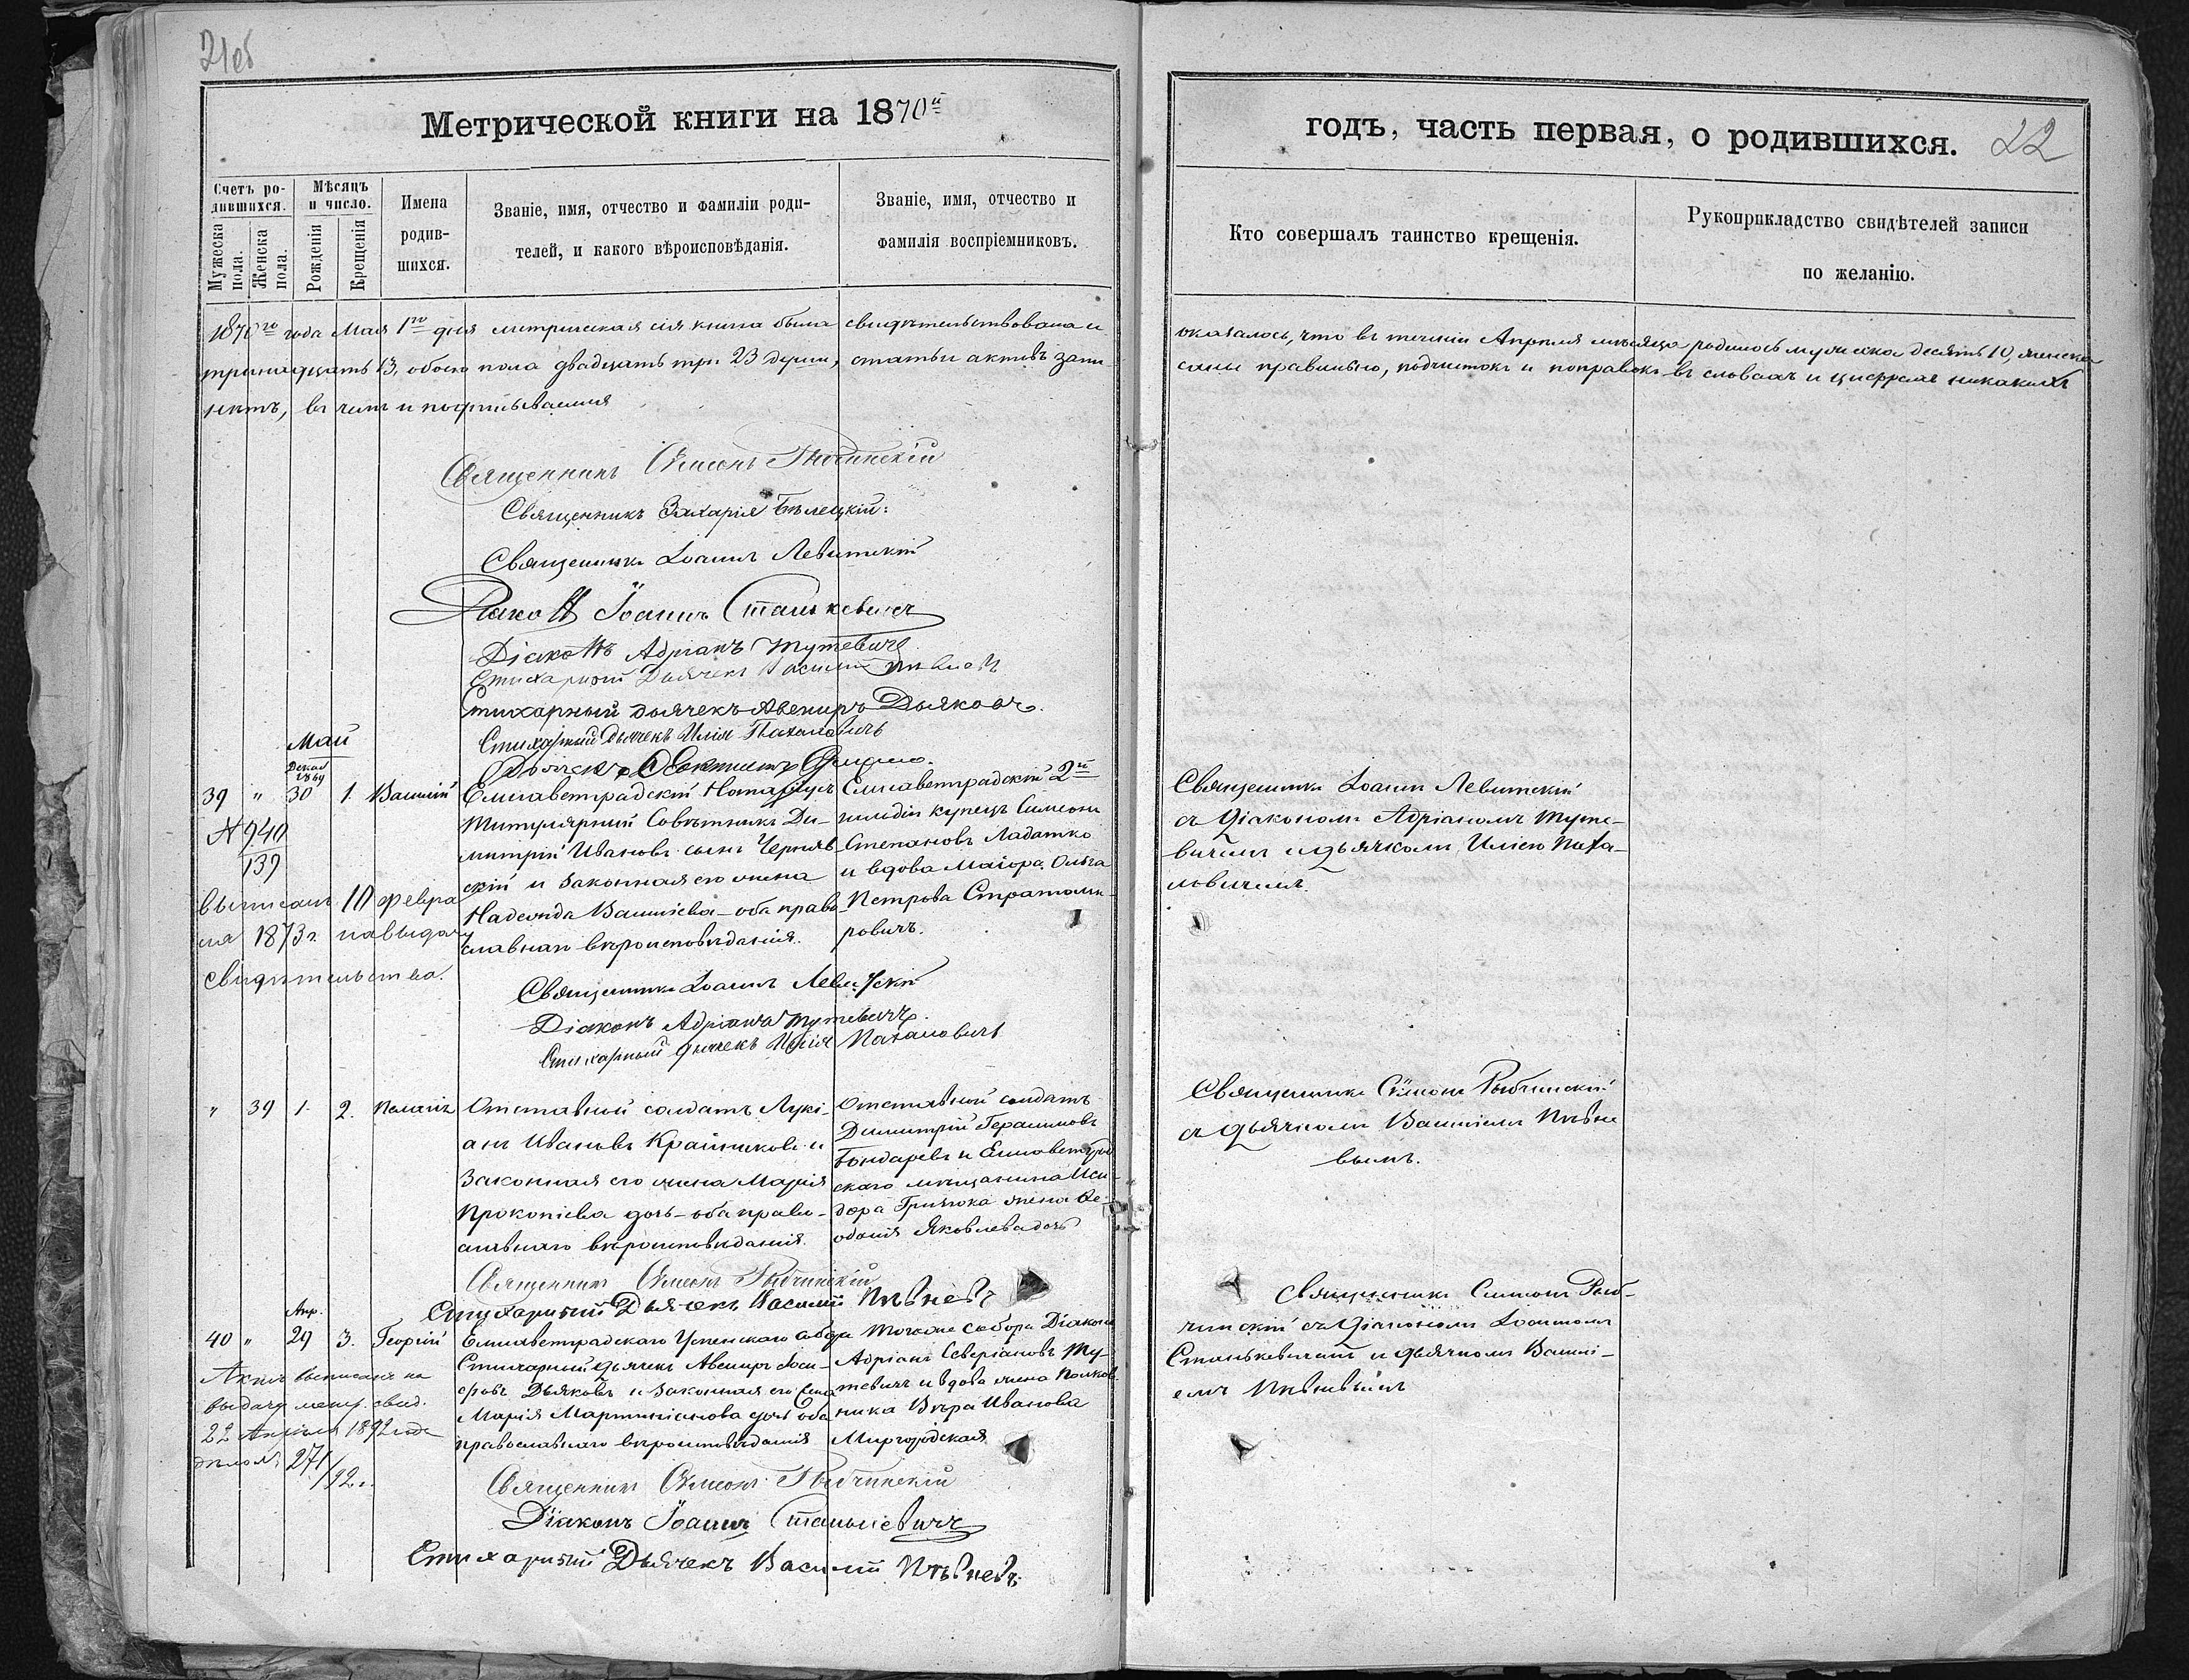 21об
Метрической книги на 1870й
годъ, часть первая, о родившихся. 22
Счетъ ро-
дившихся.
Мужеска пола.
Женска пола.
Мѣсяцъ
и число.
Рожденія
Крещенія
Имена
родив-
шихся.
Званіе, имя, отчество и фамиліи роди-
телей, и какого вѣроисповѣданія.
Званіе, имя, отчество и
фамилія воспріемниковъ.
Кто совершалъ таинство крещенія.
Рукоприкладство свидѣтелей записи
по желанію.
1870го года Мая 1го дня метрическая сія книга была свидѣтельствована и оказалось, что въ теченіи Апрѣля мѣсяца родилось мужеска десять 10, женска
тринадцать 13, обоего пола двадцать три 23 души, статьи актовъ запи-саны правильно, подчистокъ и поправокъ въ словахъ и цифрахъ никакихъ
нѣтъ, въ чемъ и подписываемся
Священникъ Симеонъ Рыбчинскій
Священникъ Захарія Бѣлецкій:
Священникъ Іоаннъ Левитскій
Діаконъ Іоаннъ Станькевичъ
Діаконъ Адріанъ Тутевичъ
Стихарный Дьячекъ Василій Пѣвневъ
Стихарный дьячекъ Авениръ Дьяковъ.
Стихарный Дьячекъ Илія Паталовичъ
Дьячекъ
Май
Декаб
1869
39 " 30 1. Василій
№ 940
139
выписанъ 10 февра
ля 1873 г. на выдачу
свидѣтельства.
Елисаветградскій Нотаріусъ
Титулярный Совѣтникъ Ди-
митрій Ивановъ сынъ Черняв-
скій и законная его жена
Надежда Василіева – оба право-
славнаго вѣроисповѣданія.
Елисаветградскій 2й
гильдіи купецъ Симеонъ
Степановъ Ладатко
и вдова Маіора Ольга
Петрова Стратами-
ровичъ.
Священникъ Іоаннъ Левитскій
съ Діакономъ Адріаномъ Туте-
вичемъ и дьячкомъ Иліею Пата-
ловичемъ.
Священникъ Іоаннъ Левитскій
Діаконъ Адріанъ Тутевичъ.
Стихарный дьячекъ Илія Паталовичъ
" 39 1. 2. Пелагія
Отставной солдатъ Лукі-
анъ Ивановъ Крайниковъ и
законная его жена Марія
Прокопіева дочь – оба право-
славнаго вѣроисповѣданія.
Отставной солдатъ
Димитрій Герасимовъ
Бондаревъ и Елисаветград
скаго мѣщанина Иси-
дора Гриньока жена Ѳе-
одосія Яковлева дочь
Священникъ Симеонъ Рыбчинскій
съ дьячкомъ Василіемъ Пѣвне
вымъ.
Священникъ Симеонъ Рыбчинскій
Стихарный Дьячекъ Василій Пѣвневъ
Апр.
40 " 29 3. Георгій
Актъ выписанъ на
выдачу метр. свид.
22 Апрѣля 1892 года
дѣло № 271/92 г.
Елисаветградскаго Успенскаго собора
Стихарный дьячекъ Авениръ Іоси-
фовъ Дьяковъ и законная его жена
Марія Мартиніанова дочь оба
православнаго вѣроисповѣданія
Тогоже собора Діаконъ
Адріанъ Северіановъ Ту-
тевичъ и вдова жена Полков
ника Вѣра Иванова
Миргородская
Священникъ Симеонъ Рыб-
чинскій съ Діакономъ Іоанномъ
Станькевичемъ и дьячкомъ Васили-
емъ Пѣвневымъ
Священникъ Симеонъ Рыбчинскій
Діаконъ Іоаннъ Станькевичъ
Стихарный Дьячекъ Василій Пѣвневъ